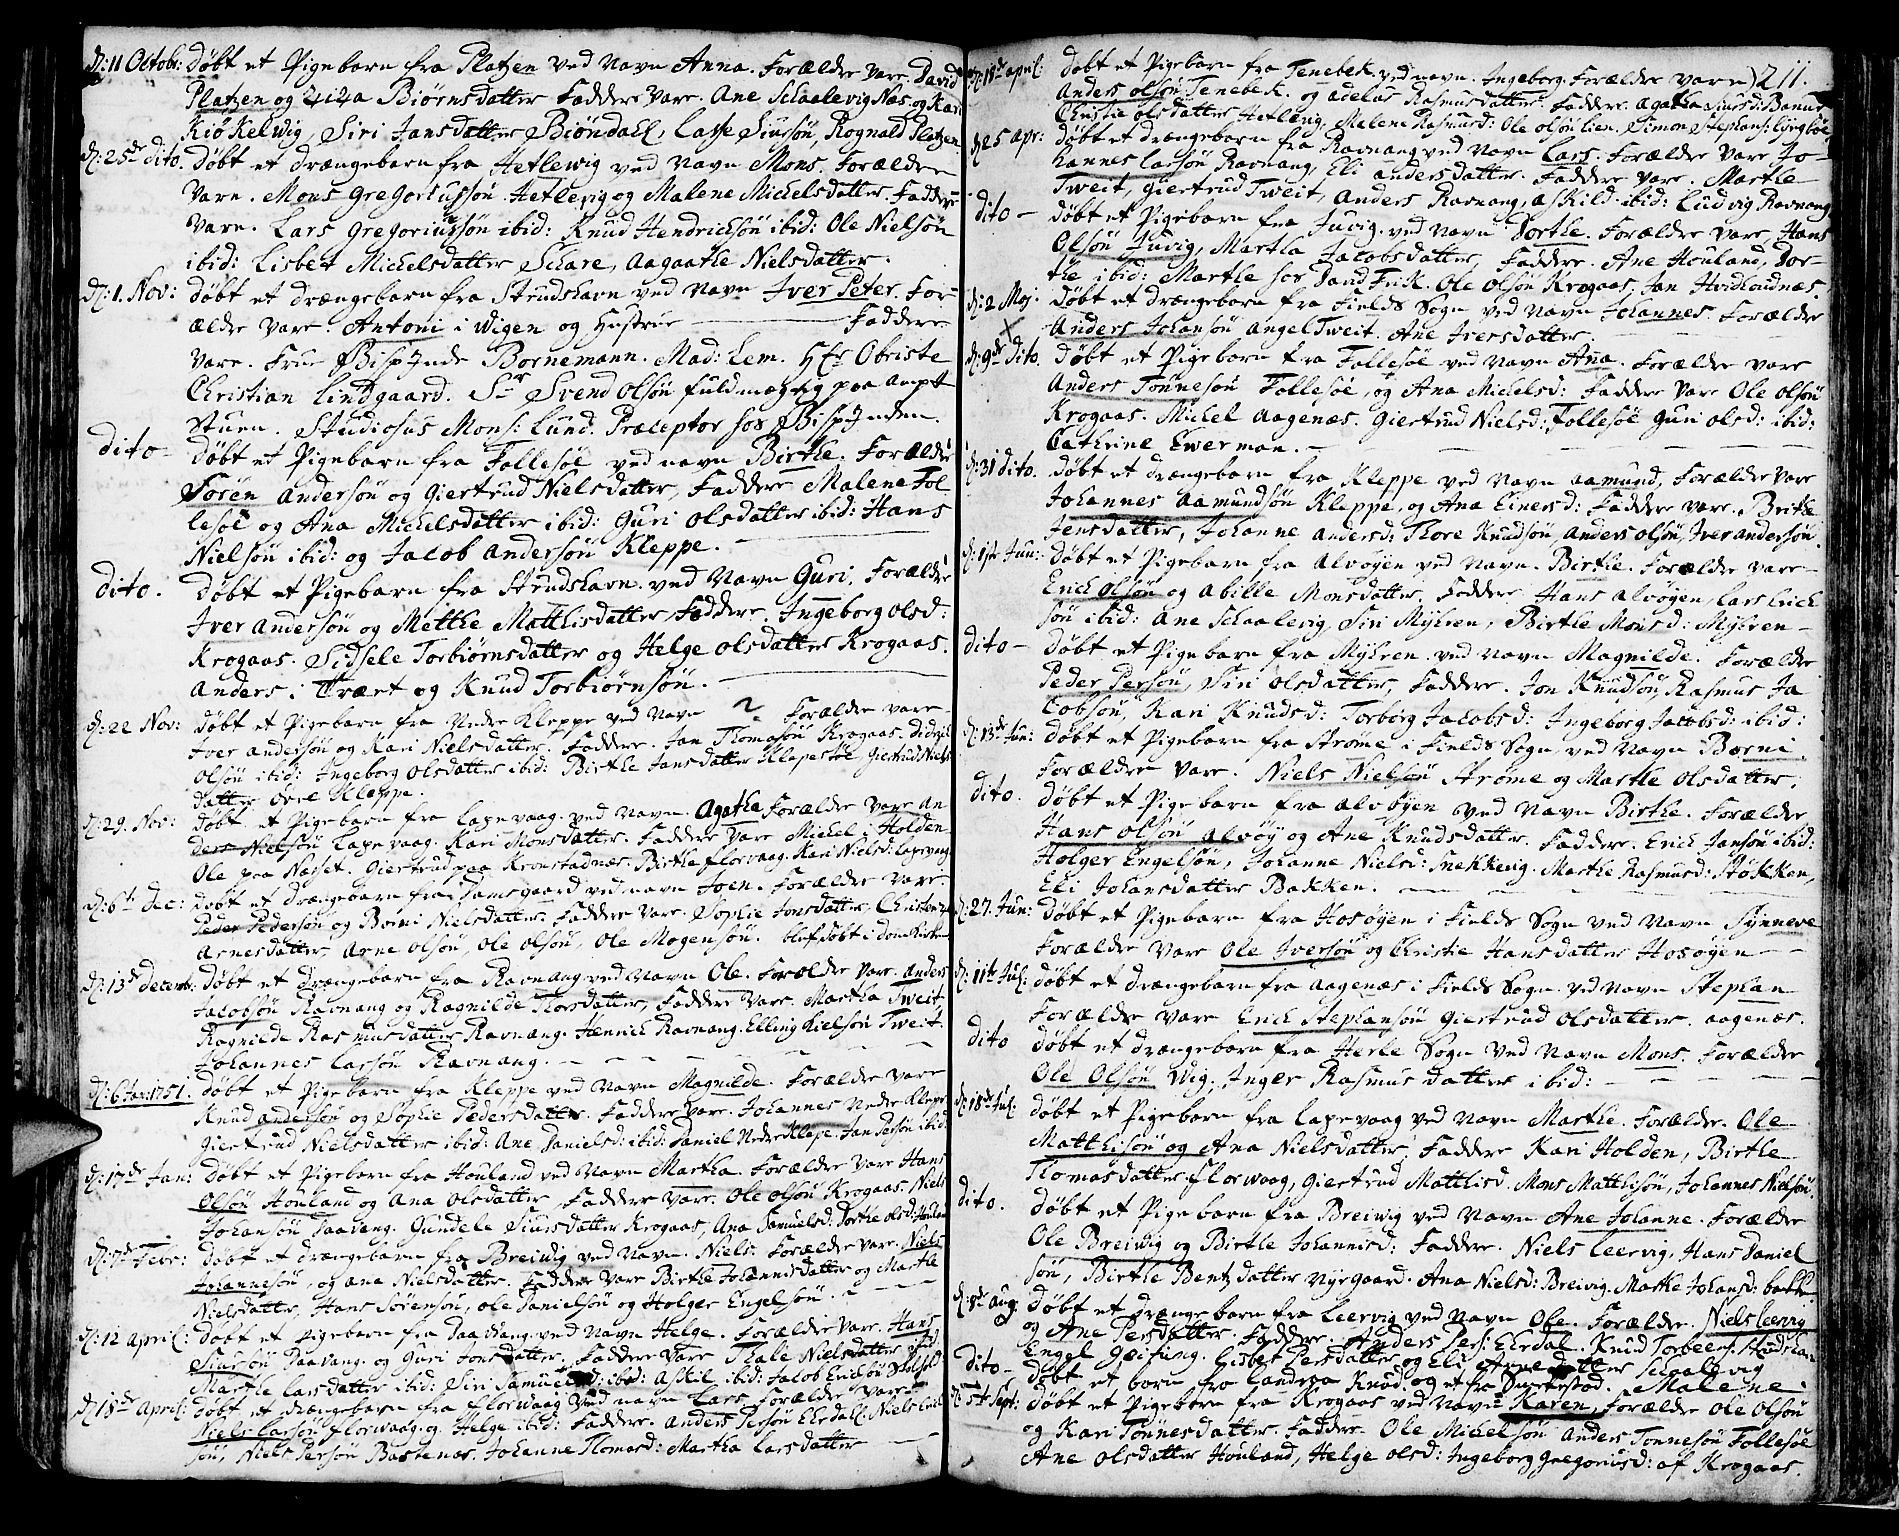 d: 11 Octobr: døbt et Pigebarn fra Platzen ved Navn Anna. Forældre vare. David
Platzen og Zizia Biørnsdatter Faddere vare. Ane Schaalevig Næs og Kari
Kiøkelwig, Siri Jansdatter Biøndall, Lasse Siusøn, Rognald Platzen
d: 25de dito. døbt et drængebarn fra Hetlewig ved Navn Mons. Forældre
vare. Mons Gregoriussøn Hetlevig og Malene Michelsdatter. Faddere
vare. Lars Gregoriussøn ibid: Knud Hendrichsøn ibid: Ole Nielsøn
ibid: Lisbet Michelsdatter Schare, Aagaathe Nielsdatter.
d: 1. Nov: døbt et drængebarn fra Strudshavn ved Navn Iver Peter. For-
ældre vare. Antoni i Wigen og Hustrue Faddere
vare. Frue Bispinde Bornemann. Mad: Lem. Hr Obriste
Christian Lindgaard. Sr Svend Olsøn fuldmægtig paa Ampt
stuen. Studiosus Mons: Lund. Præceptor hos Bispinden.
dito- døbt et Pigebarn fra Follesøe ved navn Birthe. Forældre
Søren Andersøn og Giertrud Nielsdatter, Faddere Malene Fol
lesøe og Ana Michelsdatter ibid: Guri Olsdatter ibid: Hans
Nielsøn ibid: og Jacob Andersøn Kleppe.
dito. døbt et Pigebarn fra Strudshavn ved Navn Guri, Forældre
Iver Andersøn og Metthe Matthisdatter, Faddere. Ingeborg Olsd:
Krogaas. Sidsele Torbiørnsdatter og Helge Olsdatter Krogaas.
Anders i Træet og Knud Torbiørnsøn.
d: 22 Nov: døbt et Pigebarn fra Nedre Kleppe ved Navn ? Forældre vare-
Iver Andersøn og Kari Nielsdatter. Faddere. Jan Thomasøn Krogaas. Didrik
Olsøn ibid: Ingeborg Olsdatter ibid: Birthe Jansdatter Klepestøe, Giertrud Niels
datter øvre Kleppe.
d: 29. Nov: døbt et Pigebarn fra Lapevaag ved Navn. Agathe Forældre vare An
ders Nielsøn Lapevaag. Kari Monsdatter. Faddere vare Michel i Holden
Ole paa Næset. Giertrud paa Kronstadnæs. Birthe Florvaag. Kari Nielsd: Lapevaag
d: 6te Dec: døbt et drængebarn fra Damsgaard ved navn Joen. Forældre vare.
Peder Pedersøn og Børni Nielsdatter. Faddere vare. Sophie Jonsdatter, Christenze
Arnesdatter, Arne Olsøn, Ole Olsøn, Ole Mogensøn. blef døbt i Domkirken
d: 13de Decemb: døbt et drængebarn fra Ravnang ved Navn Ole. Forældre vare. Anders
Jacobsøn Ravnang og Ragnilde Thorsdatter, Faddere vare. Martha Tweit
Ragnilde Rasmusdatter Ravnang. Henrich Ravnang. Elling Kielsøn Tweit.
Johannes Larsøn Ravnang.
d: 6 Jan: 1751. døbt et Pigebarn fra Kleppe ved Navn Magnilde. Forældre vare
Knud Andersøn og Sophie Pedersdatter. Faddere vare. Johannes Nedre Klepe
Giertrud Nielsdatter ibid: Ane Danielsd: ibid: Daniel Nedre Klepe. Jan Persøn ibid:
d: 17de Jan: døbt et Pigebarn fra Houland ved Navn Martha. Forældre vare Hans
Olsøn Houland og Ana Olsdatter, Faddere vare. Ole Olsøn Krogaas. Niels
Johansøn Daavang. Gundele Siursdatter Krogaas, Ana Samuelsd: Dorthe Olsd: Houland
d: 7de Febr: døbt et drængebarn fra Breiwig ved Navn. Niels. Forældre vare. Niels
Johannesøn, og Ane Nielsdatter. Faddere vare Birthe Johannisdatter og Marthe
Nielsdatter, Hans Sørensøn, Ole Danielsøn og Holger Engelsøn.
d: 12 April: døbt et Pigebarn fra Daavang ved Navn Helge. Forældre vare. Hans
Siursøn Daavang. og Guri Jonsdatter. Faddere vare Thale Nielsdatter ibid:
Marthe Larsdatter ibid: Siri Samuelsd: ibid: Askil ibid: Jacob Erichsøn
d: 18de April: døbt et drængebarn fra Florwaag ved navn Lars. Forældre vare.
Niels Larsøn Florwaag og Helge ibid: Faddere. Anders Persøn Elerdall. Niels Erich
søn, Niels Persøn Bastenæs. Johanne Thomasd: Martha Larsdatter
211.
d: 18de April: døbt et Pigebarn fra Tenebek ved navn. Ingeborg. Forældre vare
Anders Olsøn Tenebek. og Adelus Rasmusdatter. Faddere. Agatha Siursd: Bonnes
Christie Olsdatter Hetleng, Malene Rasmusd: Ole Olsøn Lien. Simon Stephans: Liungbøe
d: 25 Apr: døbt et drængebarn fra Ravnang ved Navn Lars. Forældre vare Jo-
hannes Larsøn Ravnang, Eli Andersdatter. Faddere vare. Marthe
Tweit, Giertrud Tweit, Anders Ravnang, Askild ibid: Ludvig Ravnang
dito- døbt et Pigebarn fra Juvig. ved Navn Dorthe. Forældre vare Hans
Olsøn Juvig, Martha Jacobsdatter, Faddere. Ane Houland, Dor-
the ibid: Marthe hos David Fisk. Ole Olsøn Krogaas. Jan Hvidhoudnæs.
d: 2 Maj: døbt et drængebarn fra Fields Sogn ved Navn Johannes. Forældre
Anders Johansøn AngelTweit. Ane Iversdatter
d: 9de dito. døbt et Pigebarn fra Follesøe ved Navn Ana. Forældre vare
Anders Tønnesøn Follesøe, og Ana Michelsd: Faddere vare Ole Olsøn
Krogaas. Michel Aagenæs. Giertrud Nielsd: Follesøe Guri Olsd: ibid:
Cathrine Ewerman.
d: 31 dito. døbt et drængebarn fra Kleppe ved Navn Aamund, Forældre vare
Johannes Aamundsøn Kleppe, og Ana Einersd: Faddere vare. Brithe
Jensdatter, Johanne Andersd: Thore Knudsøn, Anders Olsøn, Iver Andersøn.
d: 1ste Jun: døbt et Pigebarn fra Alvøyen ved Navn. Birthe. Forældre vare-
Erich Olsøn og Abille Monsdatter. Faddere Hans Alvøyen, Lars Erich
søn ibid: Ane Schaalevig, Siri Myhren, Birthe Monsd: Myhren-
dito- døbt et Pigebarn fra Myhren ved Navn Magnilde. Forældre
Peder Persøn, Siri Olsdatter, Faddere. Jon Knudsøn, Rasmus Ja
cobsøn, Kari Knudsd: Torborg Jacobsd: Ingeborg Jacobsd: ibid:
d: 13de Jun: døbt et Pigebarn fra Strøme i Fields Sogn ved Navn Børni.
Forældre vare. Niels Nielsøn Strøme og Marthe Olsdatter.
dito. døbt et Pigebarn fra Alvøyen ved Navn Birthe. Forældre
Hans Olsøn Alvøy og Ane Knudsdatter. Faddere. Erich Jansøn ibid:
Holger Engelsøn, Johanne Nielsd: Snekkevig. Marthe Rasmusd: Støkken,
Eli Johansdatter Bakken.
d: 27. Jun: døbt et Pigebarn fra Hosøyen i Fields Sogn ved Navn Synneve
Forældre vare Ole Iversøn og Christie Hansdatter Hosøyen
d: 11te Jul: døbt et drængebarn fra Aagenæs i Fields Sogn. ved Navn Stephan
Forældre vare Erich Stephansøn Giertrud Olsdatter. Aagenæs.
dito døbt et drængebarn fra Herle Sogn ved Navn Mons. Forældre
Ole Olsøn Wig, Inger Rasmusdatter ibid:
d: 18de Jul: døbt et Pigebarn fra Lapevaag ved Navn Marthe. Forældre. Ole
Matthisøn og Ana Nielsdatter, Faddere Kari Holden, Birthe
Thomasdatter Florwaag, Giertrud Matthisd. Mons Matthisøn, Johannes Nielsøn.
dito. døbt et Pigebarn fra Breiwig ved Navn Ane Johanne. Forældre
Ole Breiwig og Birthe Johannisd: Faddere. Niels Leervig, Hans Daniel
søn, Birthe Bentzdatter Nyegaard. Ana Nielsd: Breivig. Marthe Johansd: bakke
d: 8de Aug. døbt et drængebarn fra Leervig ved Navn Ole. Forældre. Niels Leervig
og Ane Persdatter. Faddere. Anders Pers: Elerdal. Knud Torbeers: Strudshavn
Engel Geifing. Lisbet Persdatter og Eli Arnedatter Schaalevig
dito- døbt et barn fra Landraa Knud. og et fra Smørestad. Malene.
d: 5te Sept: døbt et Pigebarn fra Krogaas ved Navn Karen, Forældre Ole Olsøn
og Kari Tønnesdatter. Faddere. Ole Michelsøn Anders Tønnesøn Follesøe
Ane Olsdatter Houland, Helge Olsd: Ingeborg Gregoriusd: af Krogaas.